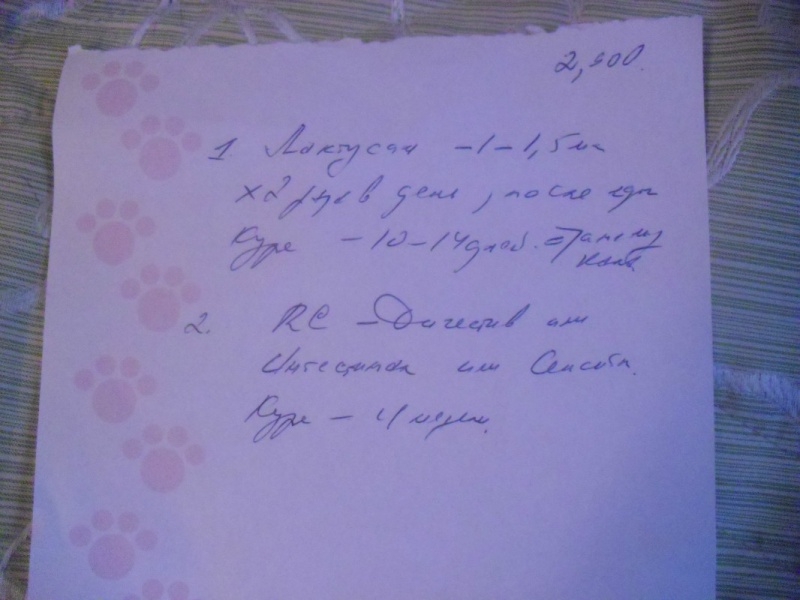 2,900.
1. Лактусан - 1 - 1,5 мл
х2 раза в день, после еды
Курс - 10-14 дней. => анализ
кала.
2. RC - Дигестив или
Интестинал или Сенсити.
Курс - 4 недели.